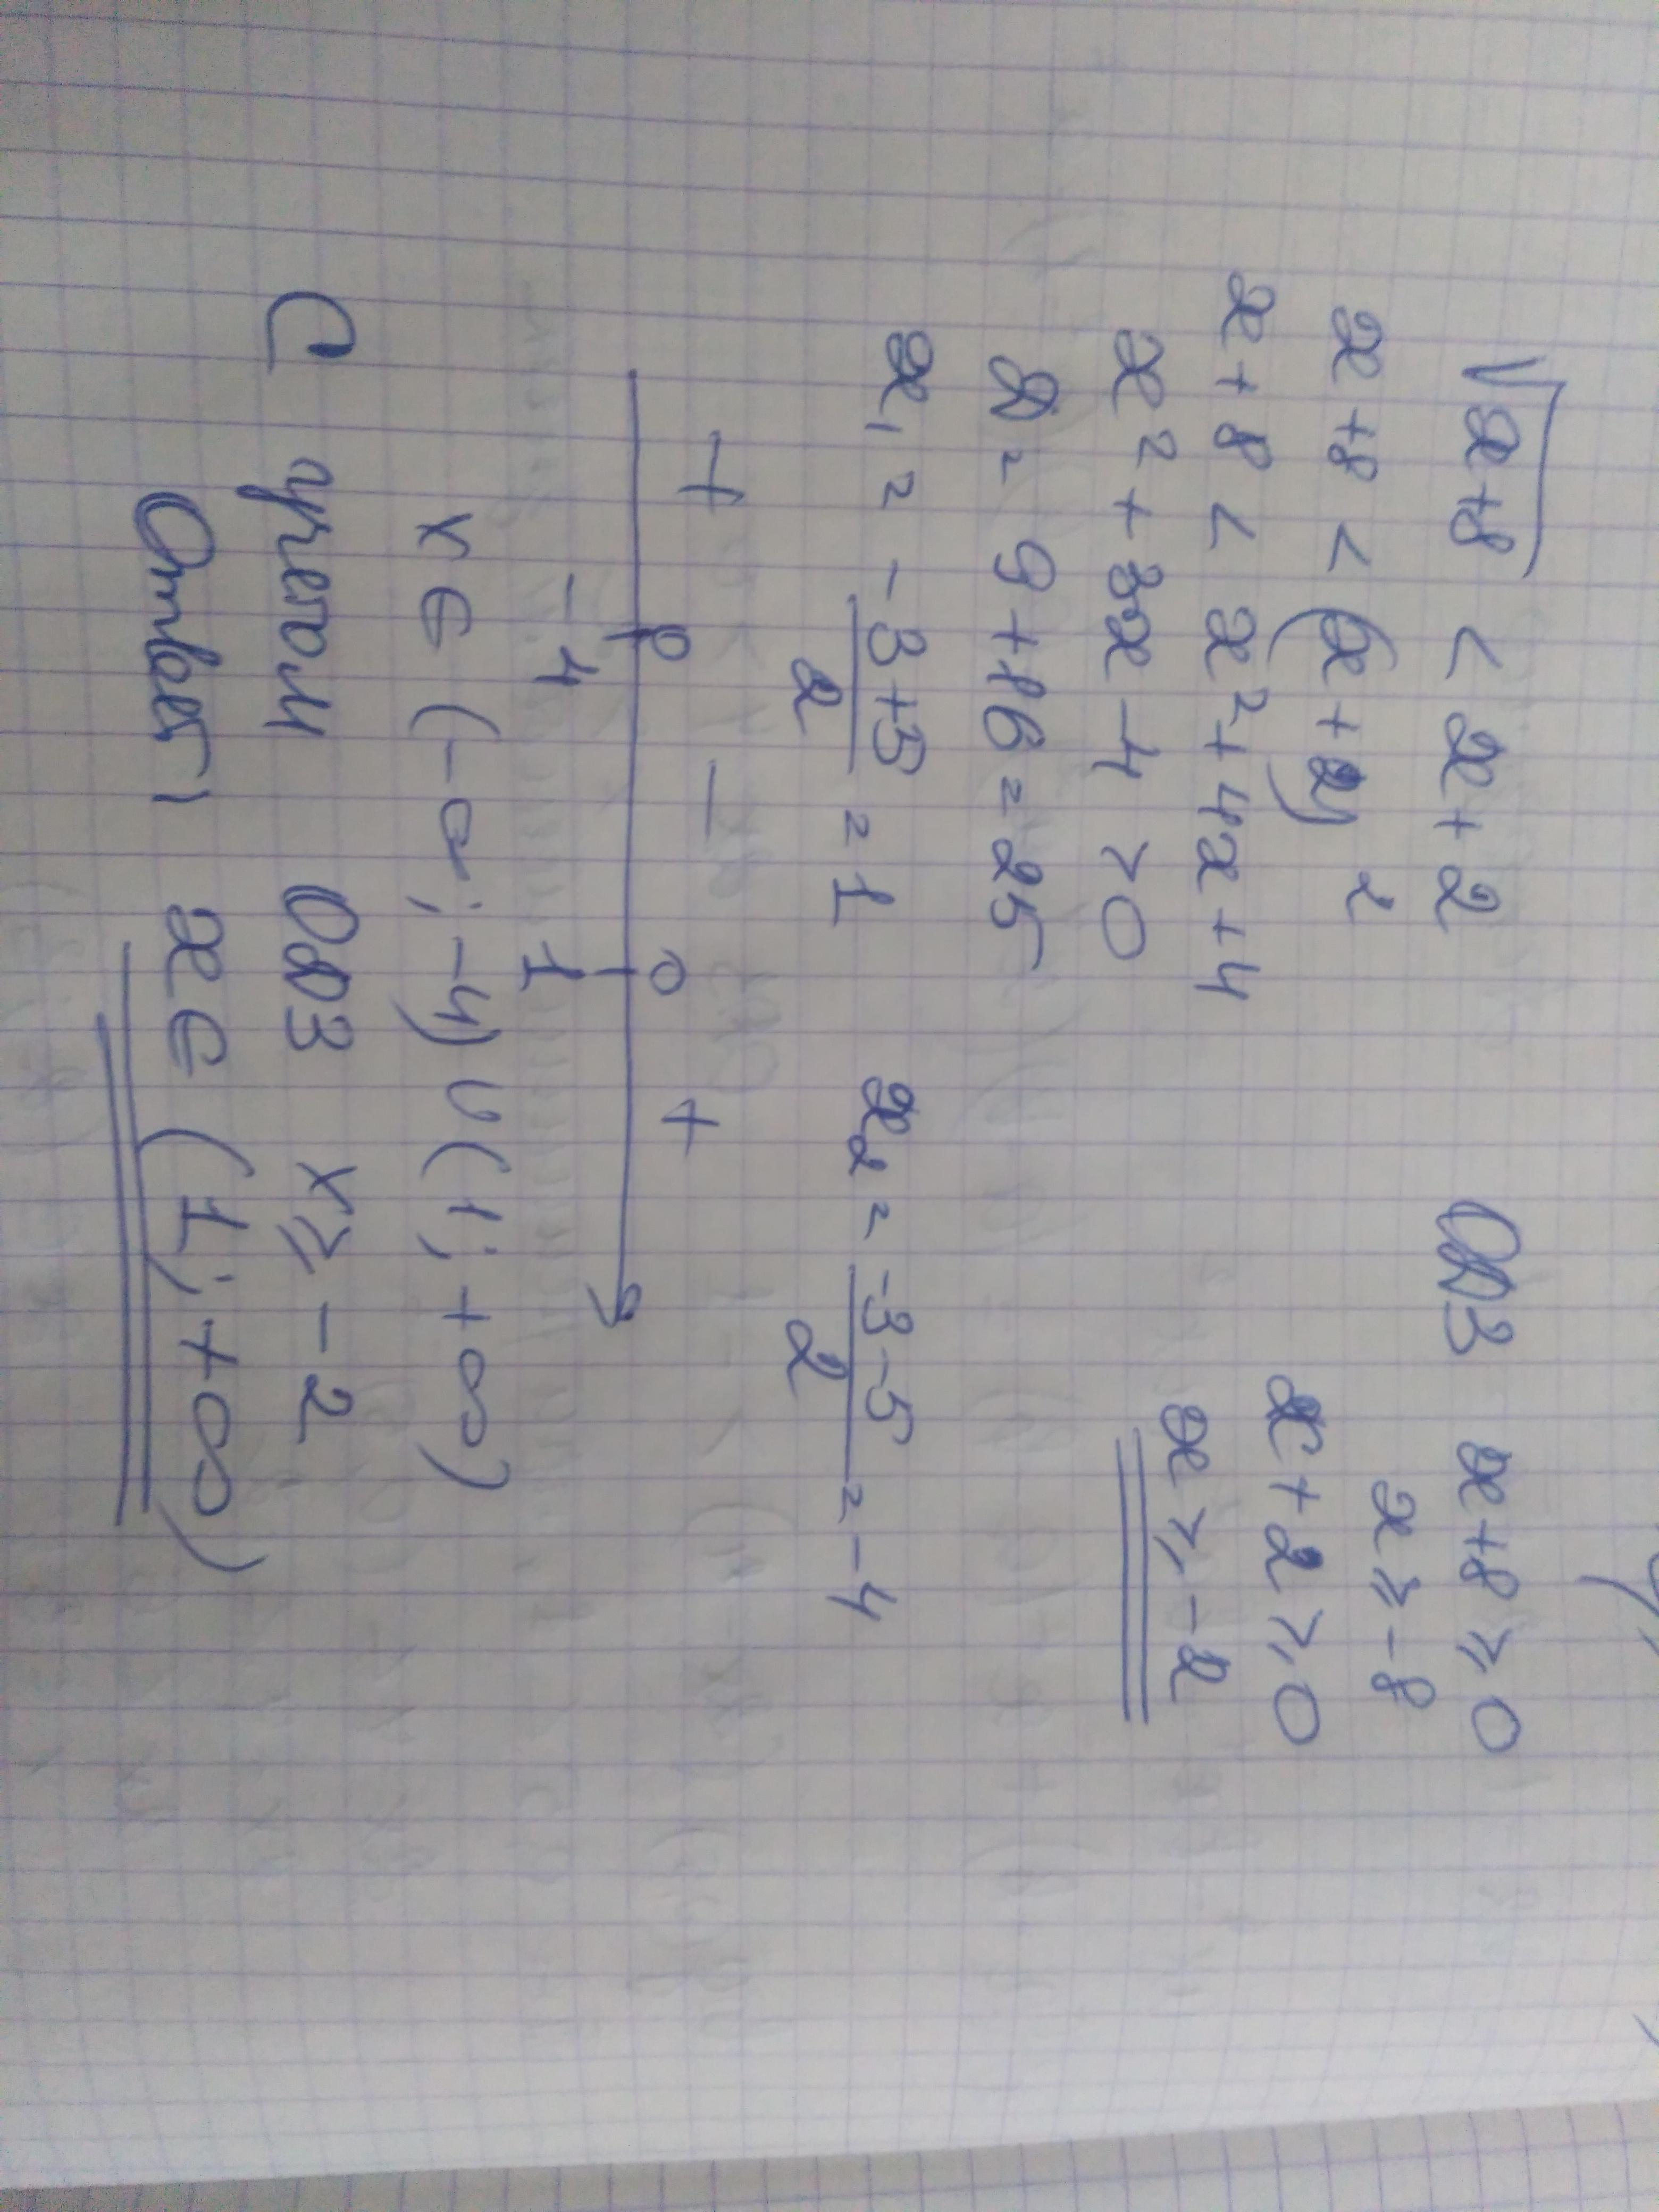 √x+8 < x+2 ОДЗ x+8 ≥ 0
x+8 < (x+2)²
x ≥ -8
x+8 < x²+4x+4
x+2 ≥ 0
x²+3x-4 > 0
x ≥ -2
D = 9+16 = 25
x₁ = -3+5/2 = 1 x₂ = -3-5/2 = -4
+ - +
-4 1
x ∈ (-∞; -4) ∪ (1; +∞)
С учетом ОДЗ x ≥ -2
Ответ: x ∈ (1; +∞)